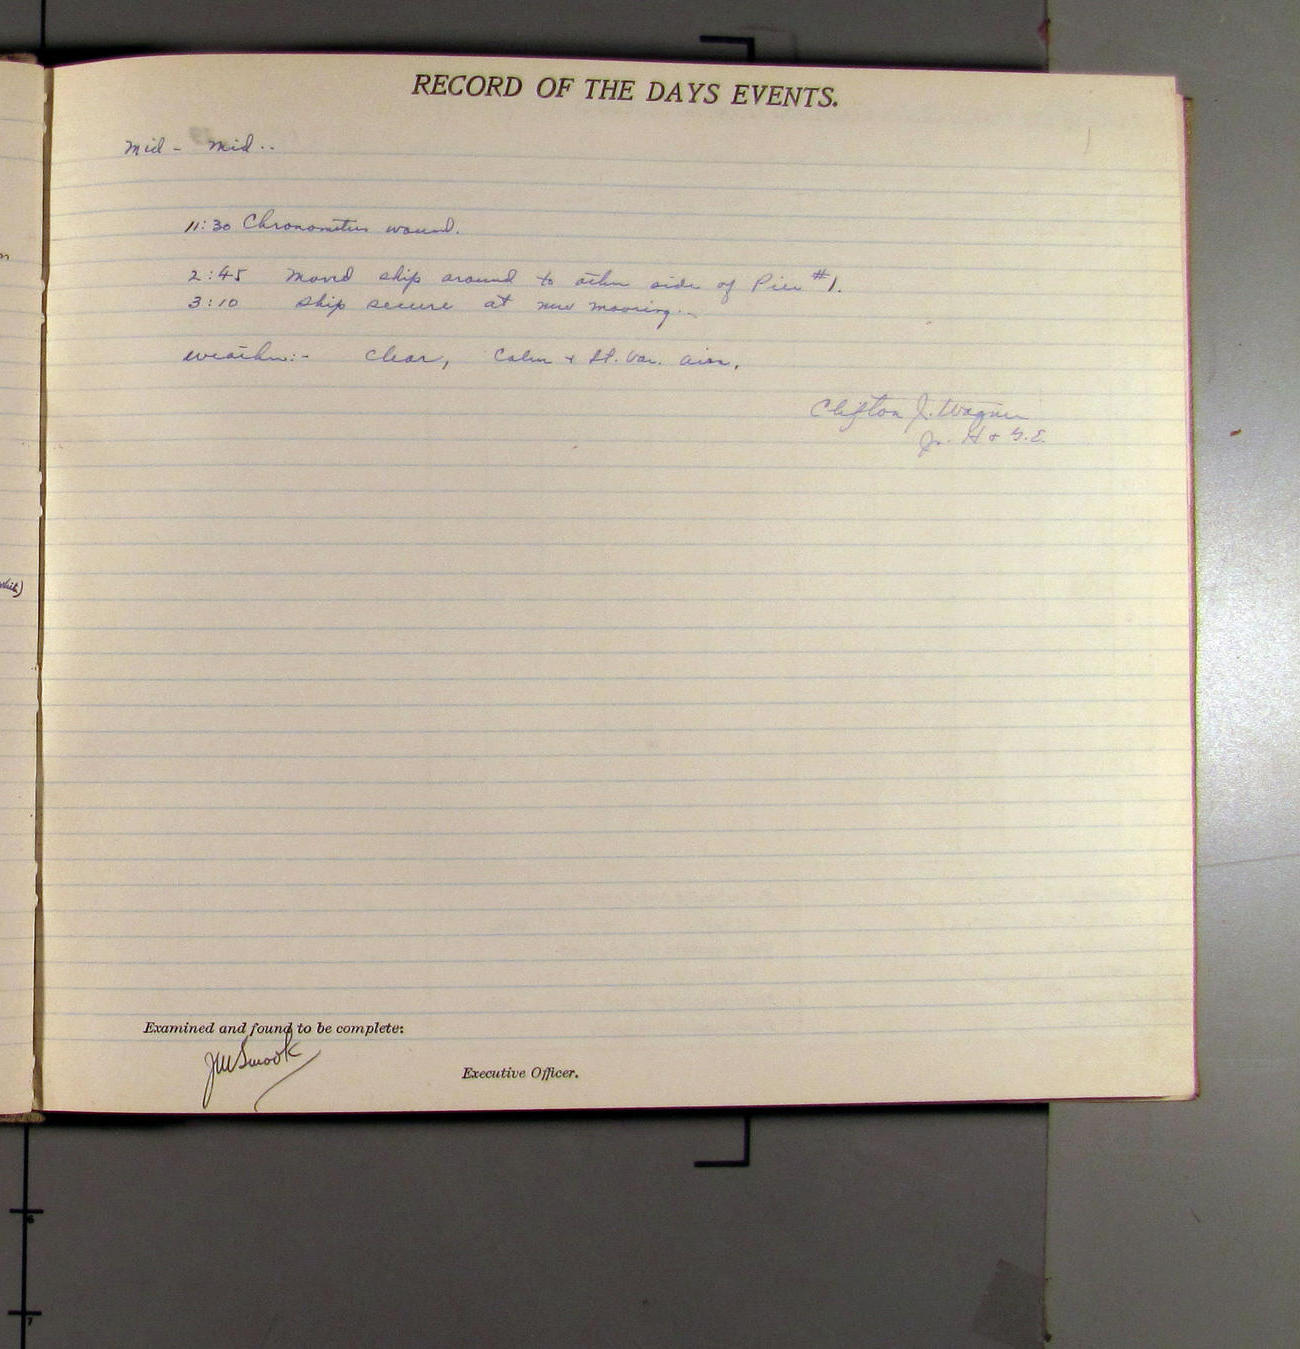 RECORD OF THE DAYS EVENTS.
Mid - Mid..
11:30 Chronometers wound.
2:45 Moved ship around to other side of Pier #1.
3:10 Ship secure at new mooring..
Weather:- Clear, Calm + Lt. Var. airs.
Clifton J. Wagner
Jr. H + G.E.
Examined and found to be complete:
JMSmook
Executive Officer.
6
7